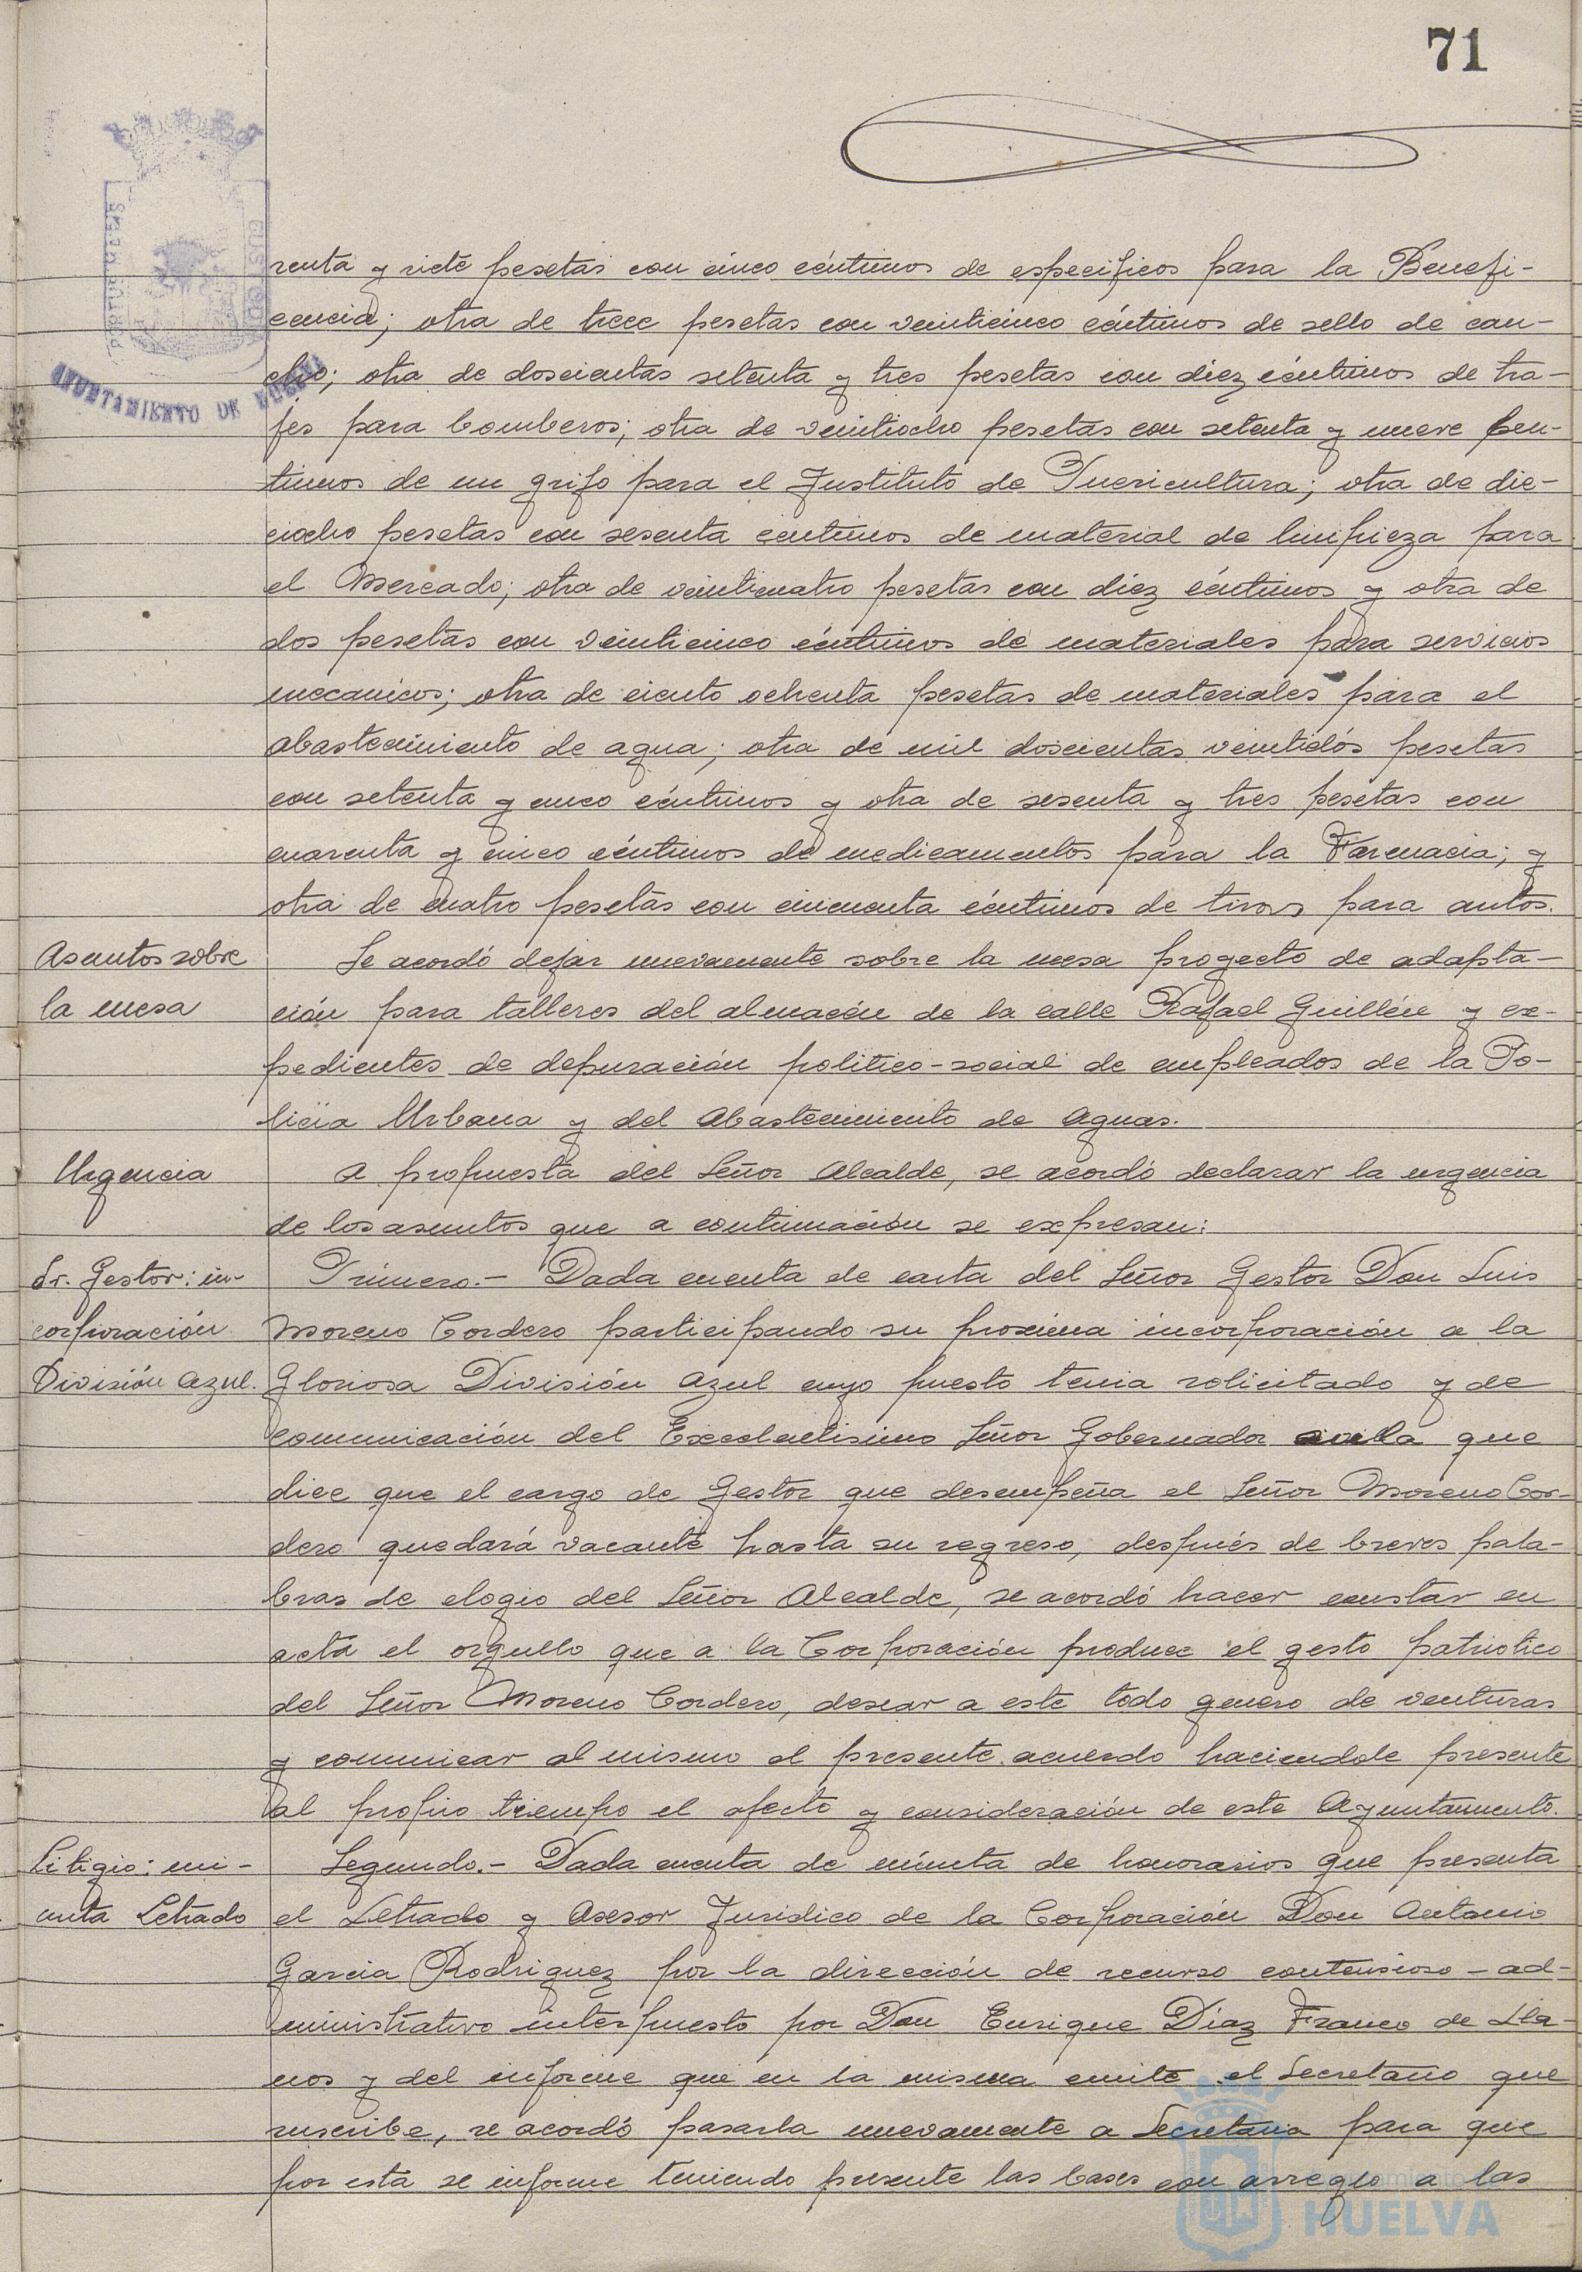 71
AYUNTAMIENTO DE HUELVA
renta y siete pesetas con cinco céntimos de especificos para la Benefi-
cencia; otra de trece pesetas con veinticinco céntimos de sello de cau-
cho; otra de doscientas setenta y tres pesetas con diez céntimos de tra-
jes para bomberos; otra de veintiocho pesetas con setenta y nueve cen-
timos de un grifo para el Instituto de Puericultura; otra de die-
ciocho pesetas con sesenta centimos de material de limpieza para
el Mercado; otra de veinticuatro pesetas con diez céntimos y otra de
dos pesetas con veinticinco céntimos de materiales para servicios
mecanicos; otra de ciento ochenta pesetas de materiales para el
abastecimiento de agua; otra de mil doscientas veintidós pesetas
con setenta y cinco céntimos y otra de sesenta y tres pesetas con
cuarenta y cinco céntimos de medicamentos para la Farmacia; y
otra de cuatro pesetas con cincuenta céntimos de tiros para autos.
Asuntos sobre
la mesa
Se acordó dejar nuevamente sobre la mesa proyecto de adapta-
ción para talleres del almacén de la calle Rafael Guillén y ex-
pedientes de depuración politico-social de empleados de la Po-
licia Urbana y del Abastecimiento de Aguas.
Urgencia
A propuesta del Señor Alcalde, se acordó declarar la urgencia
de los asuntos que a continuación se expresan:
Sr. Gestor: in-
corporación
División Azul.
Primero.- Dada cuenta de carta del Señor Gestor Don Luis
Moreno Cordero participando su proxima incorporación a la
Gloriosa División Azul cuyo puesto tenia solicitado y de
comunicación del Excelentisimo Señor Gobernador en la que
dice que el cargo de Gestor que desempeña el Señor Moreno Cor-
dero quedará vacante hasta su regreso, después de breves pala-
bras de elogio del Señor Alcalde, se acordó hacer constar en
acta el orgullo que a la Corporación produce el gesto patriotico
del Señor Moreno Cordero, desear a este todo genero de venturas
y comunicar al mismo el presente acuerdo haciendole presente
al propio tiempo el afecto y consideración de este Ayuntamiento.
Litigio: mi-
nuta Letrado
Segundo.- Dada cuenta de minuta de honorarios que presenta
el Letrado y Asesor Juridico de la Corporación Don Antonio
Garcia Rodriguez por la dirección de recurso contensioso-ad-
ministrativo interpuesto por Don Enrique Díaz Franco de Lla-
nos y del informe que en la misma emite el Secretario que
suscribe, se acordó pasarla nuevamente a Secretaria para que
por esta se informe teniendo presente las bases con arreglo a las
Ayuntamiento
HUELVA